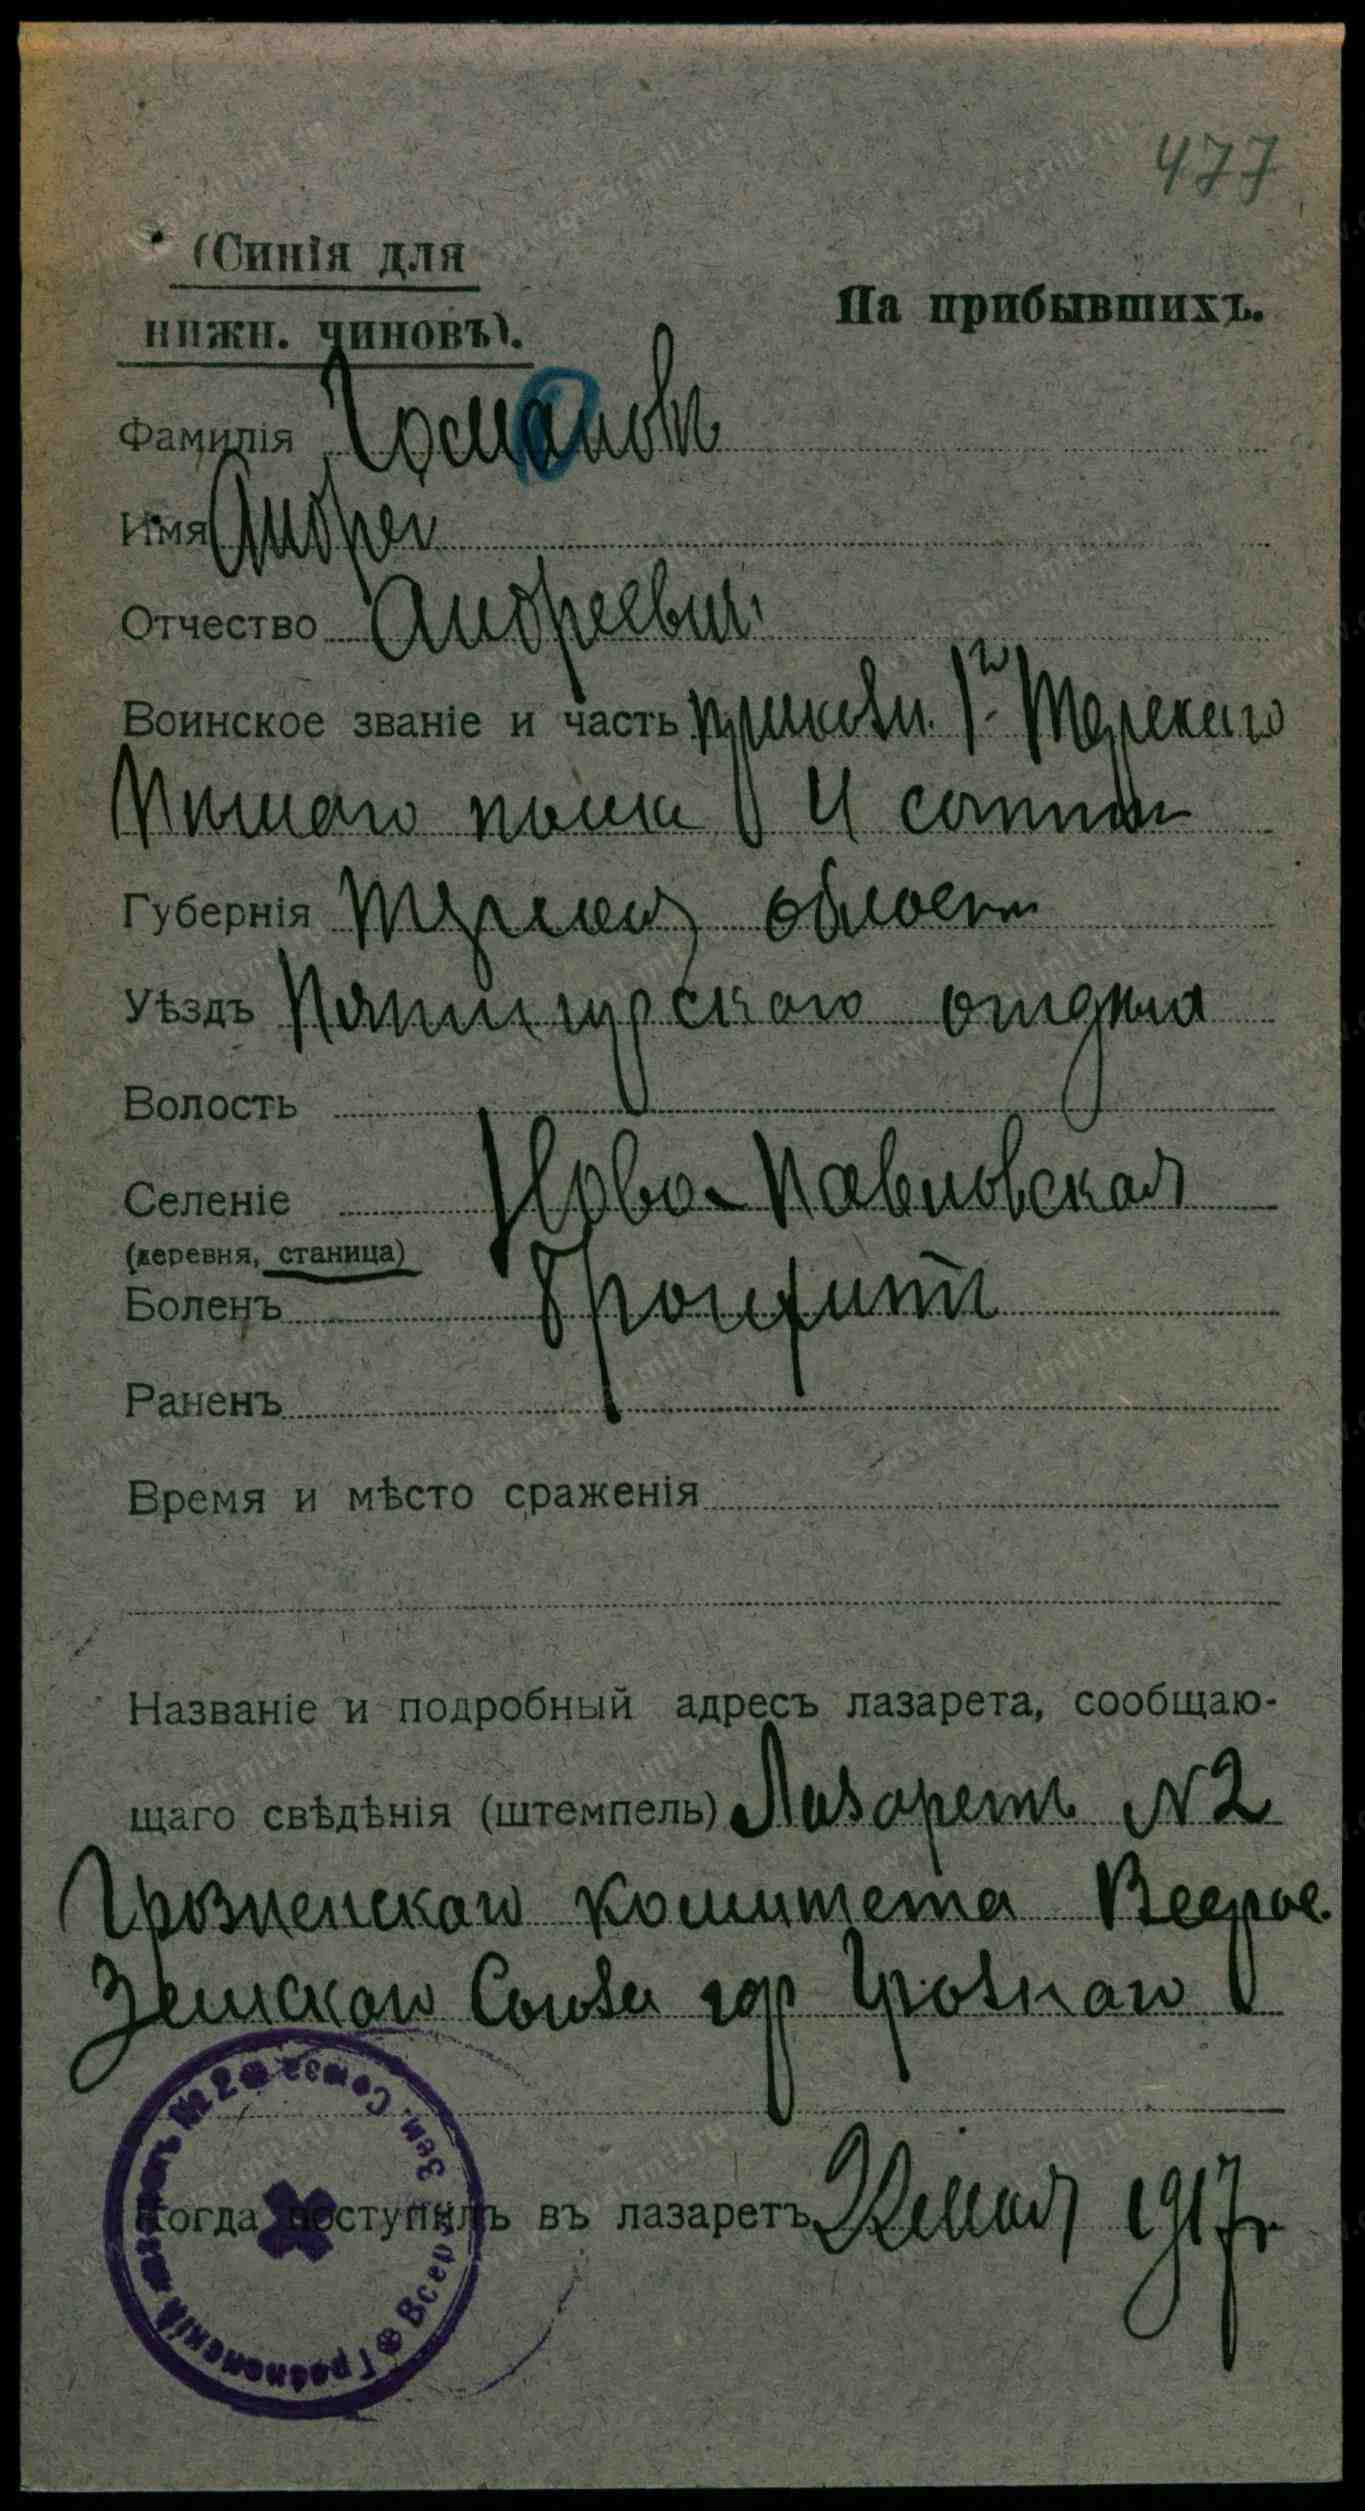 477
(Синія для
нижн. чиновъ).
На прибывшихъ.
Фамилія
Имя Андрей
Отчество Андреевич
Воинское званіе и часть приказн. 1го Терскаго
Пѣшаго полка 4 сотни
Губернія Терская область
Уѣздъ Пятигорскаго отдѣла
Волость
Селеніе Ново-Павловская
(деревня, станица)
Боленъ Бронхитъ
Раненъ
Время и мѣсто сраженія
Названіе и подробный адресъ лазарета, сообщаю-
щаго свѣдѣнія (штемпель) Лазаретъ №2
Грозненскаго комитета Всерос.
Земскаго Союза гор Грознаго
Когда поступилъ въ лазаретъ мая 1917 г.
Грозненскій №2 Всер. Зем. Союза
www.gwar.mil.ru